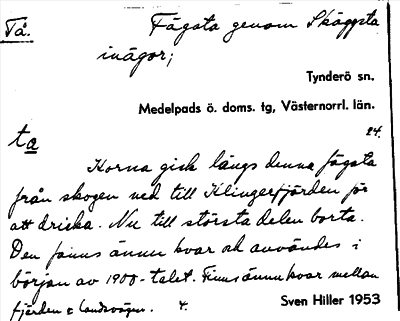 Tå. Fägata genom Skäggsta
inägor;
Tynderö sn.
Medelpads ö. doms. tg, Västernorrl. län.
24.
ta
Korna gick längs denna fägata
från skogen ned till Klingerfjärden för
att dricka. Nu till största delen borta.
Den finns ännu kvar och användes i
början av 1900-talet. Finns ännu kvar mellan
fjärden o landsvägen. 4.
Sven Hiller 1953